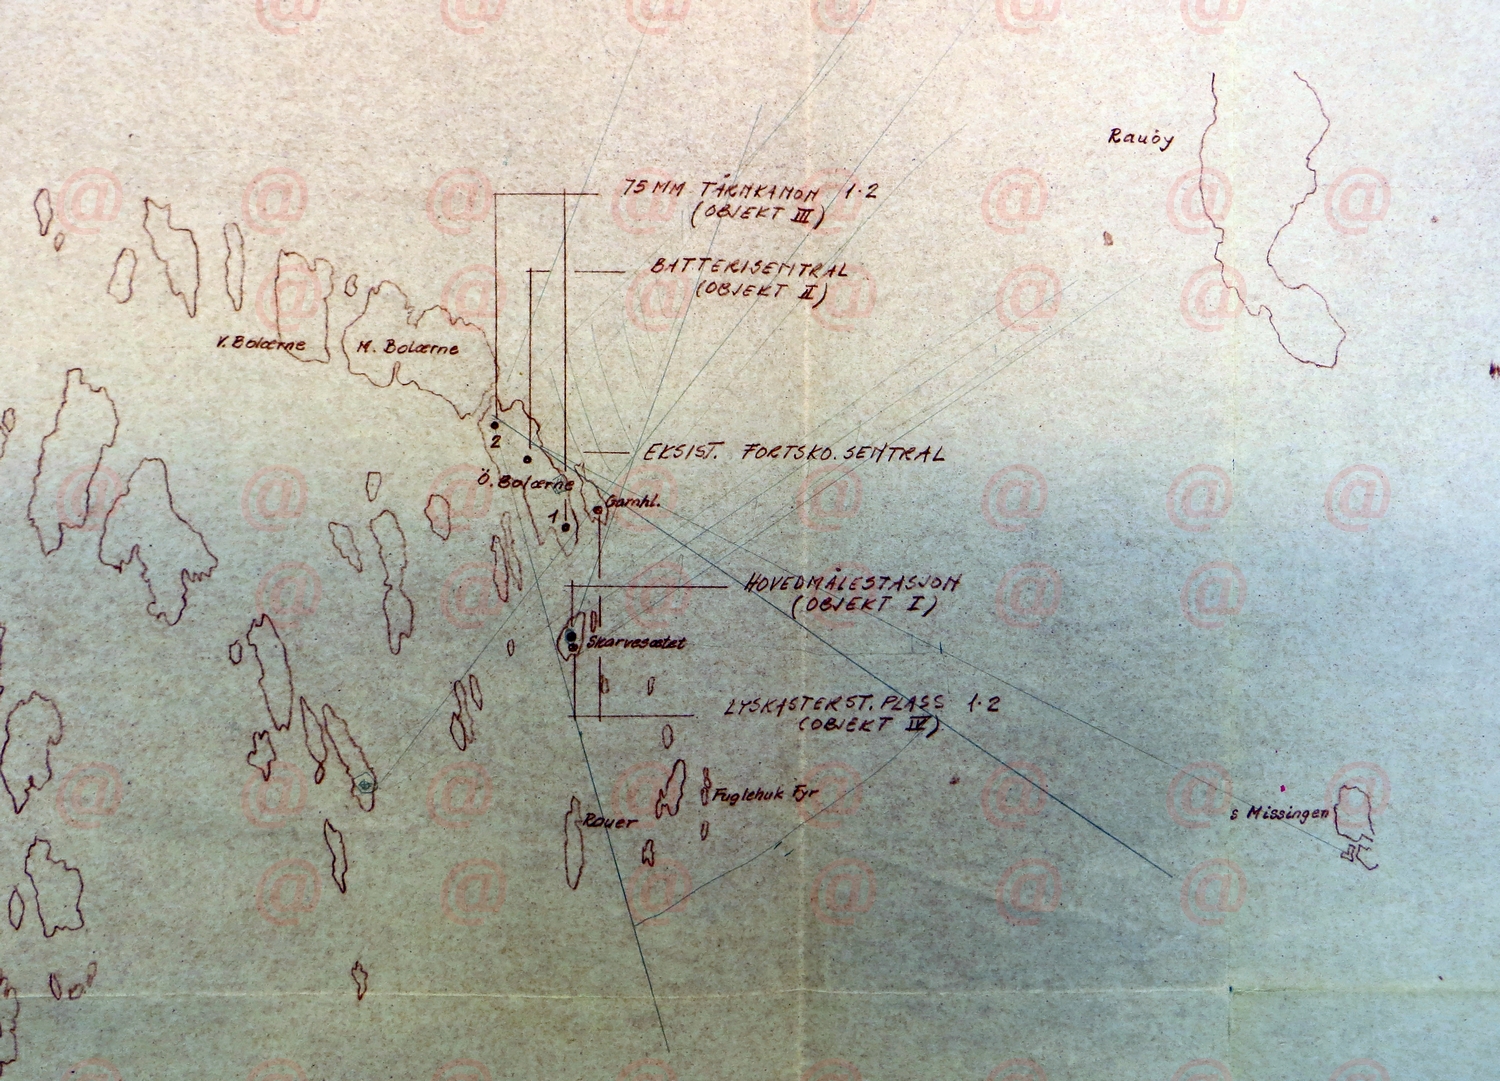 Rauöy
75 MM TÅRNKANON 1·2
(OBJEKT III)
BATTERISENTRAL
(OBJEKT II)
V. Bolærne
M. Bolærne
2
EKSIST. FORTSKO. SENTRAL
Ö. Bolærne
Garnhl.
1
HOVEDMÅLESTASJON
(OBJEKT I)
Skarvesætet
LYSKASTERST. PLASS 1·2
(OBJEKT IV)
Fuglehuk Fyr
Rauer
S Missingen